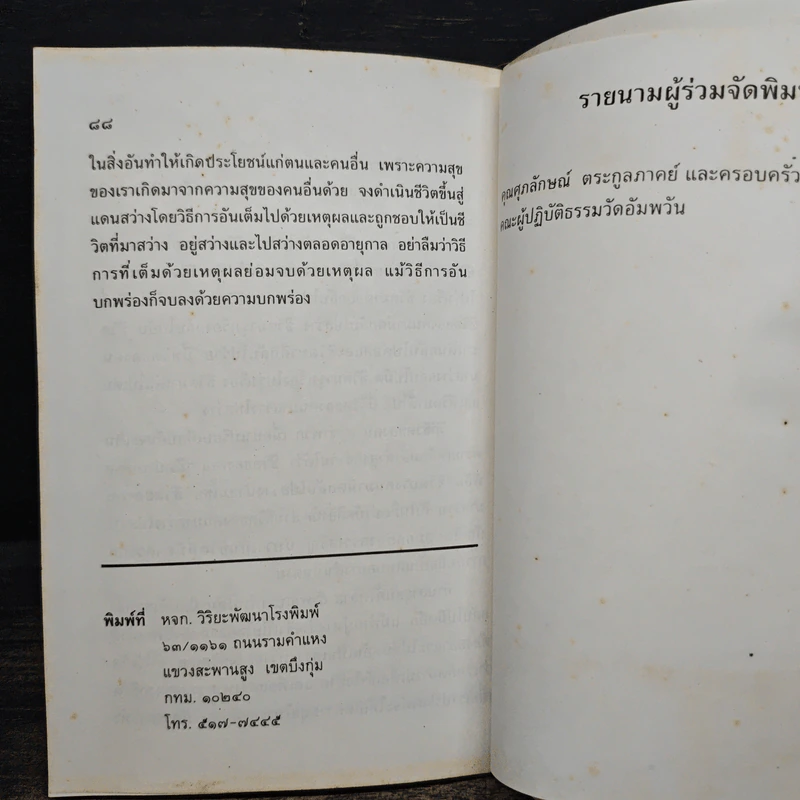 ๘๘
ในสิ่งอันทำให้เกิดประโยชน์แก่ตนและคนอื่น เพราะความสุข
ของเราเกิดมาจากความสุขของคนอื่นด้วย จงดำเนินชีวิตขึ้นสู่
แดนสว่างโดยวิธีการอันเต็มไปด้วยเหตุผลและถูกชอบให้เป็นชี
วิตที่มาสว่าง อยู่สว่างและไปสว่างตลอดอายุกาล อย่าลืมว่าวิธี
การที่เต็มด้วยเหตุผลย่อมจบด้วยเหตุผล แม้วิธีการอัน
บกพร่องก็จบลงด้วยความบกพร่อง
พิมพ์ที่ หจก. วิริยะพัฒนาโรงพิมพ์
๖๓/๑๑๖๑ ถนนรามคำแหง
แขวงสะพานสูง เขตบึงกุ่ม
กทม. ๑๐๒๔๐
โทร. ๕๑๗-๗๔๔๕
รายนามผู้ร่วมจัดพิม
คุณศุภลักษณ์ ตระกูลภาคย์ และครอบครัว
คณะผู้ปฏิบัติธรรมวัดอัมพวัน